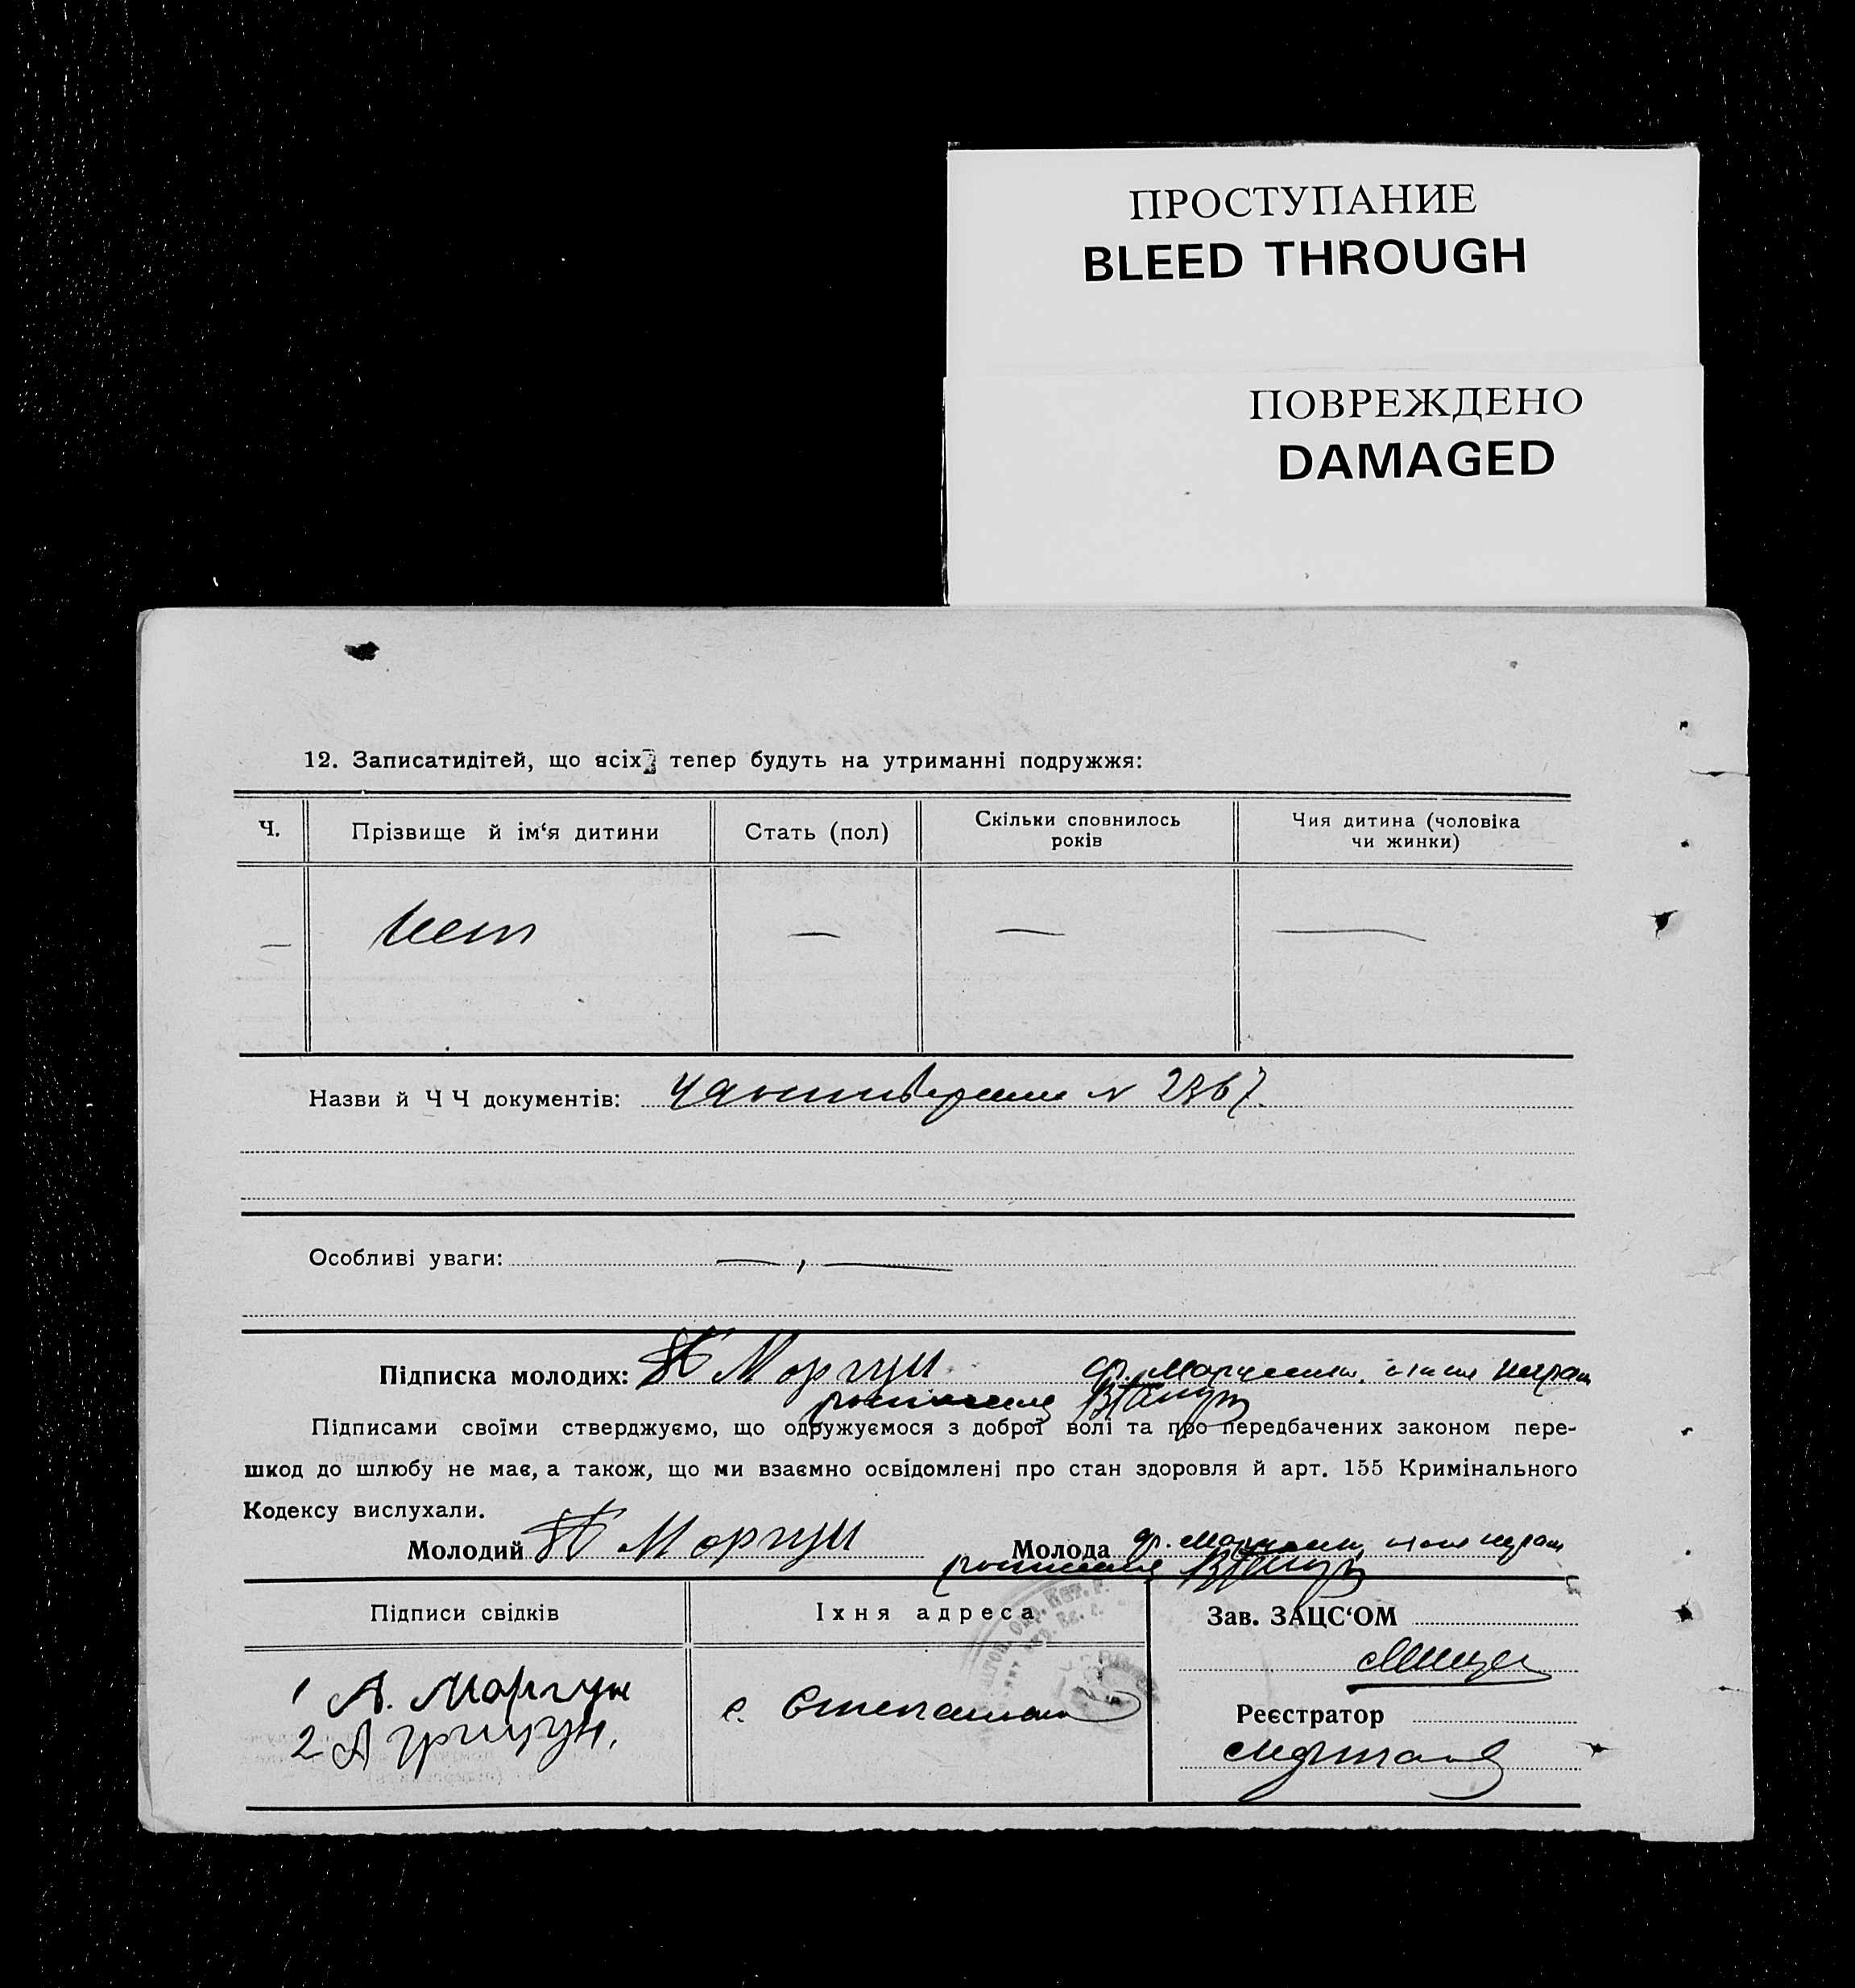 ПРОСТУПАНИЕ
BLEED THROUGH
ПОВРЕЖДЕНО
DAMAGED
12. Записатидітей, що всіх тепер будуть на утриманні подружжя:
Ч.
Прізвище й ім‘я дитини
Стать (пол)
Скільки сповнилось
років
Чия дитина (чоловіка
чи жинки)
— нет — — —
Назви й Ч Ч документів: N 2867.
Особливі уваги: —, —
Підписка молодих: Моргун
Підписами своїми стверджуємо, що одружуємося з доброї волі та про передбачених законом пере-
шкод до шлюбу не має, а також, що ми взаємно освідомлені про стан здоровля й арт. 155 Кримінального
Кодексу вислухали.
Молодий Моргун Молода
Підписи свідків
Їхня адреса
Зав. ЗАЦС‘ОМ
1 А. Моргун
2 А Грицун.
с. Степановка
Реєстратор